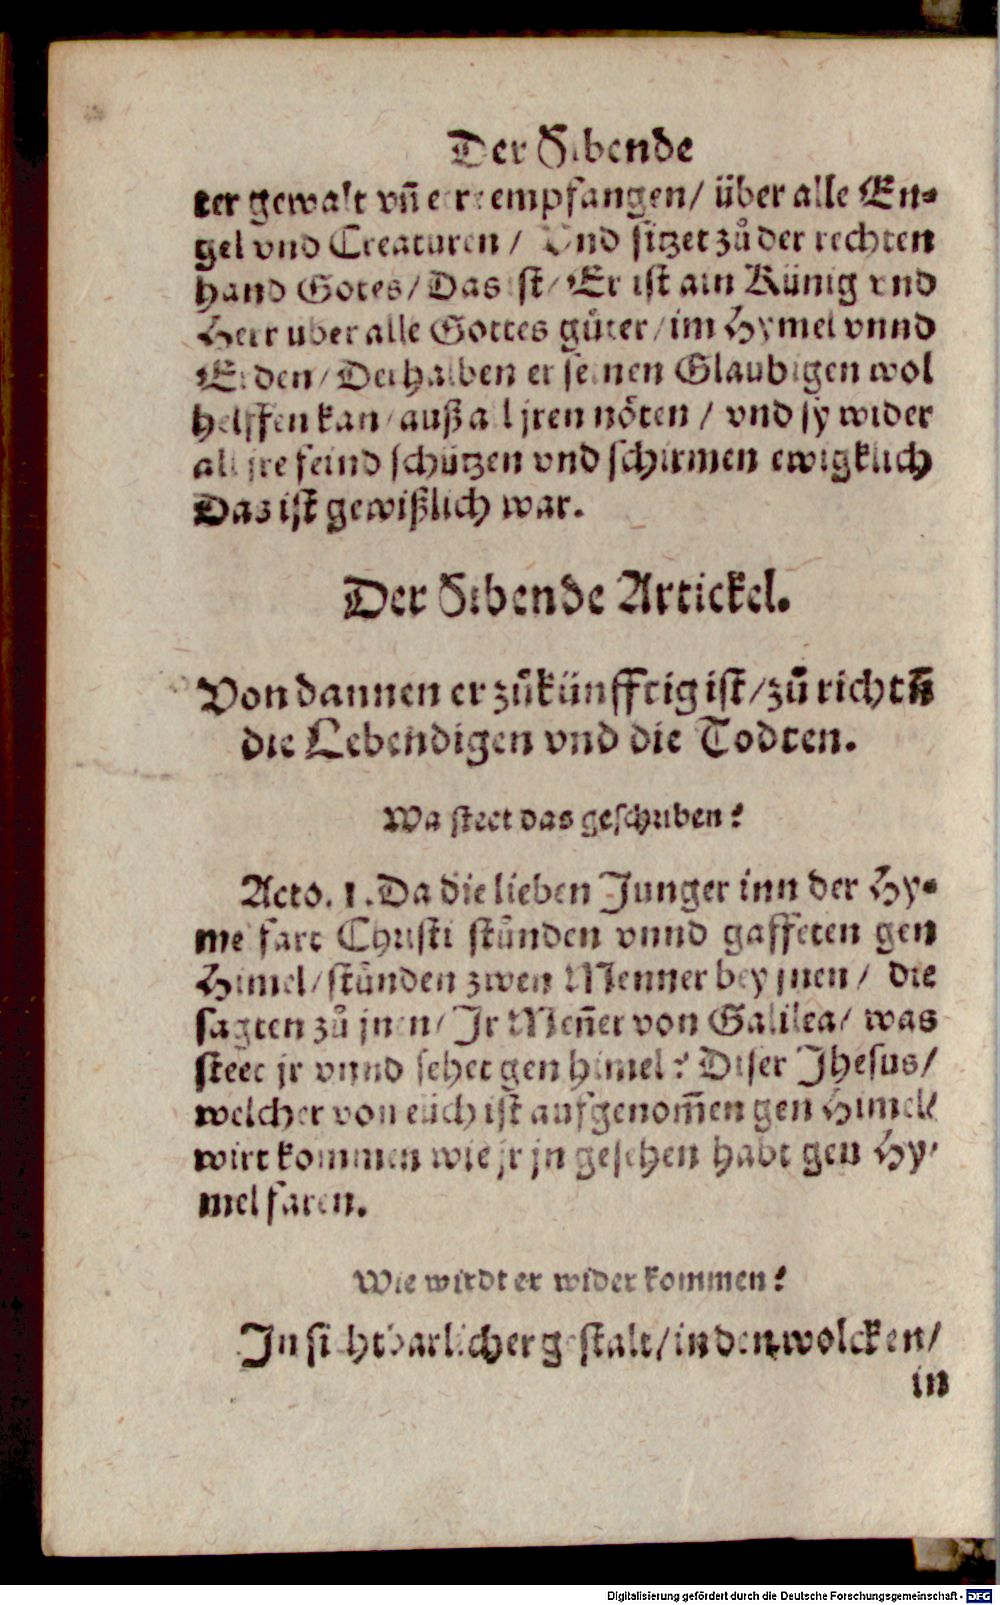 Der Sibende
ter gewalt vñ eere empfangen/ über alle En-
gel vnd Creaturen / Vnd sitzet zů der rechten
hand Gotes/ Das ist/ Er ist ain Künig vnd
Herr uber alle Gottes gůter/ im Hymel vnnd
Erden/ Derhalben er seinen Glaubigen wol
helffen kan/ auß all jren nöten / vnd sy wider
all jre feind schützen vnd schirmen ewigklich
Das ist gewißlich war.
Der Sibende Artickel.
Von dannen er zůkünfftig ist/ zů richtñ
die Lebendigen vnd die Todten.
Wa steet das geschriben?
Acto. 1. Da die lieben Junger inn der Hy-
mel fart Christi stůnden vnnd gaffeten gen
Himel/ stůnden zwen Menner bey jnen / die
sagten zů jnen/ Jr Meñer von Galilea/ was
steet jr vnnd sehet gen himel? Diser Jhesus/
welcher von euch ist aufgenom̃en gen Himel/
wirt kommen wie jr jn gesehen habt gen Hy-
mel faren.
Wie wirdt er wider kommen?
In sichtbarlicher gestalt/ in den wolcken/
in
Digitalisierung gefördert durch die Deutsche Forschungsgemeinschaft - DFG